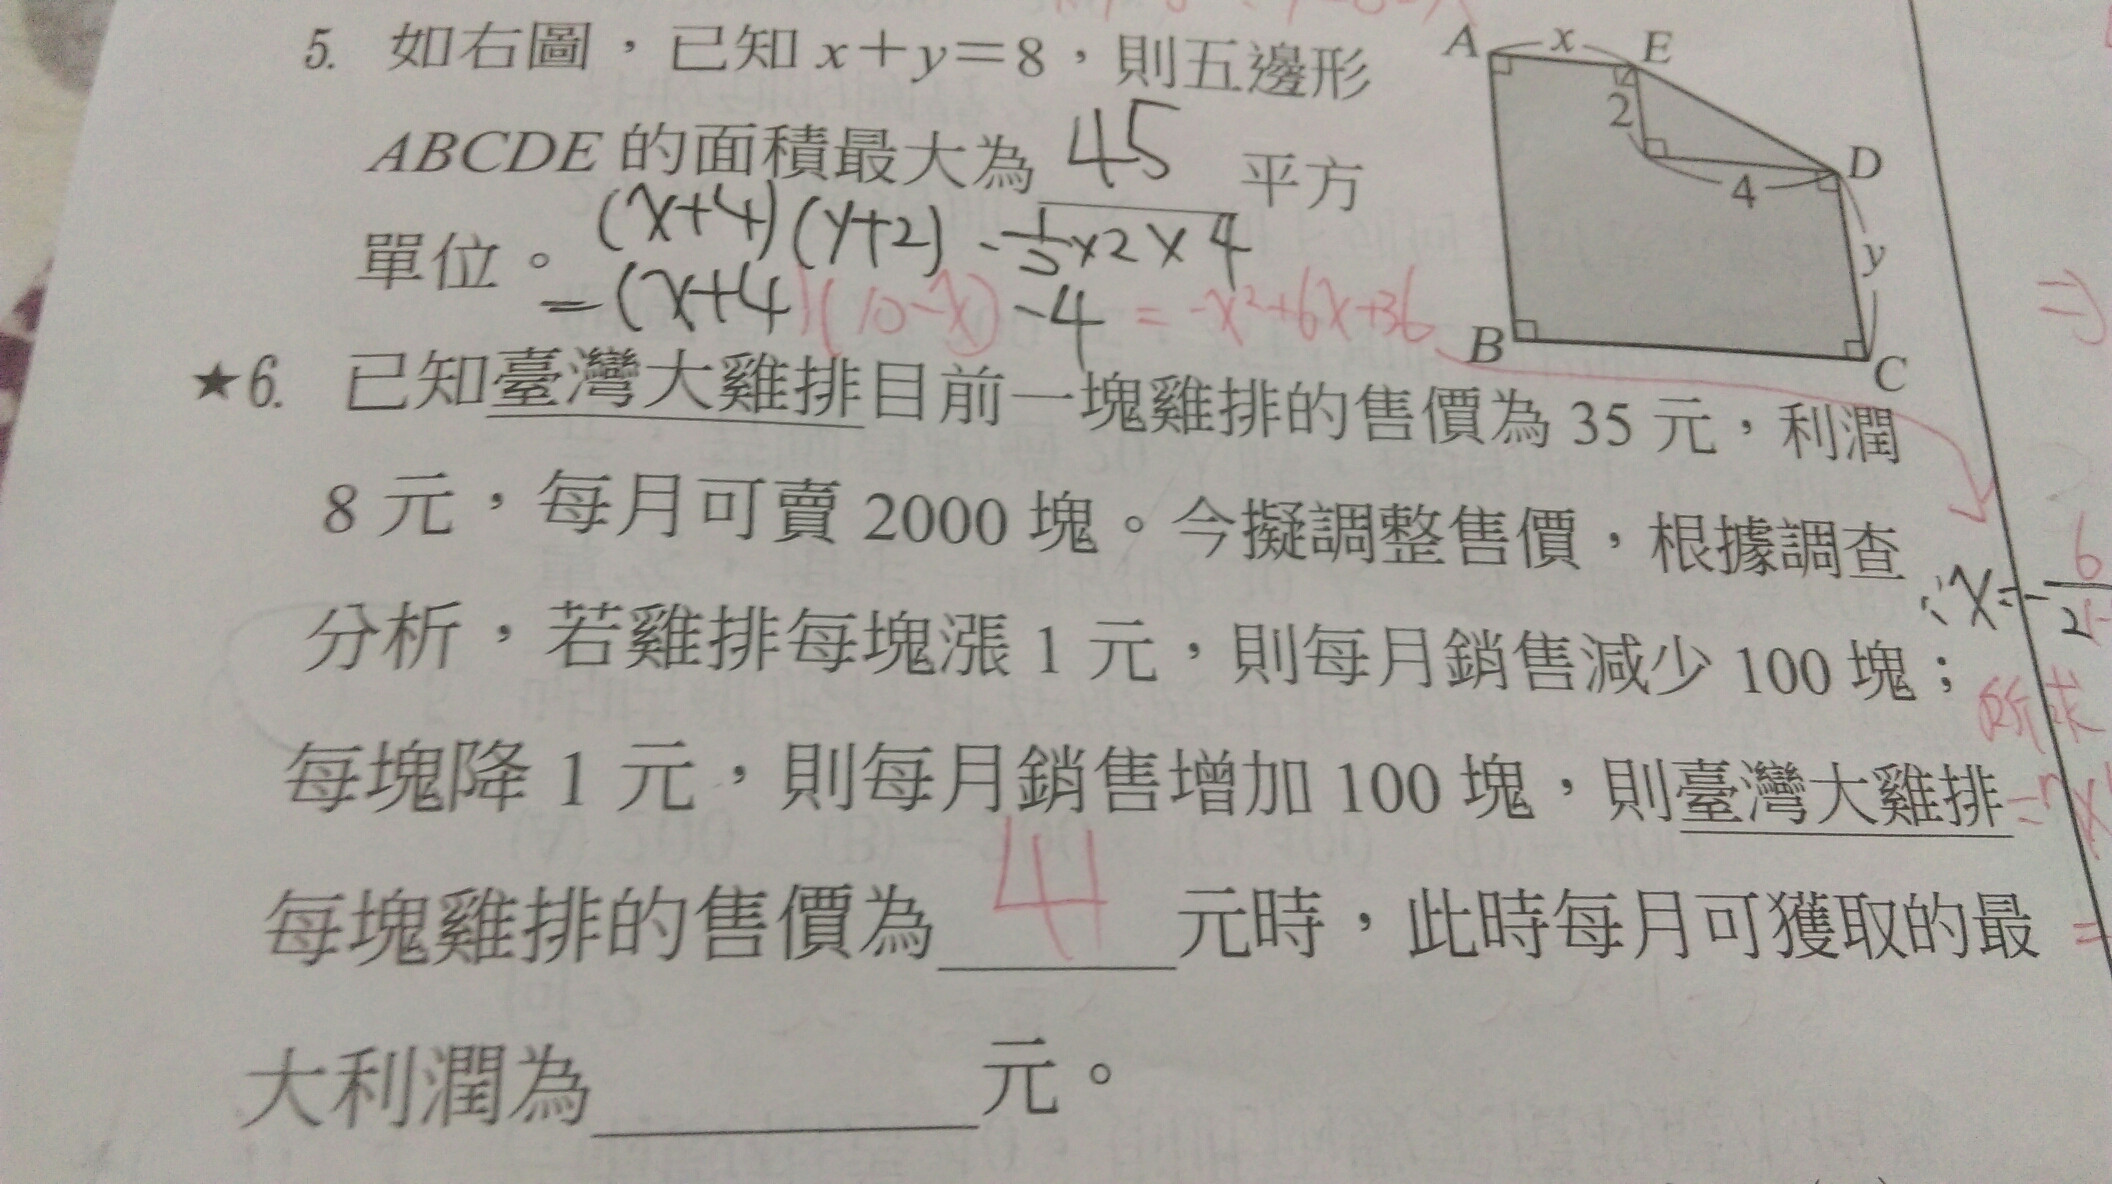 5. 如右圖,已知 x+y=8,則五邊形
ABCDE 的面積最大為 45 平方
單位。 (x+4)(y+2)-½×2×4
=(x+4)(10-x)-4 = -x²+6x+36
A x E
2
D
4
y
B
C
★6. 已知臺灣大雞排目前一塊雞排的售價為 35 元,利潤
8 元,每月可賣 2000 塊。今擬調整售價,根據調查
分析,若雞排每塊漲 1 元,則每月銷售減少 100 塊;
每塊降 1 元,則每月銷售增加 100 塊,則臺灣大雞排
每塊雞排的售價為 41 元時,此時每月可獲取的最
大利潤為 元。
⇒
∴x=-6/2(-
所求
=
=